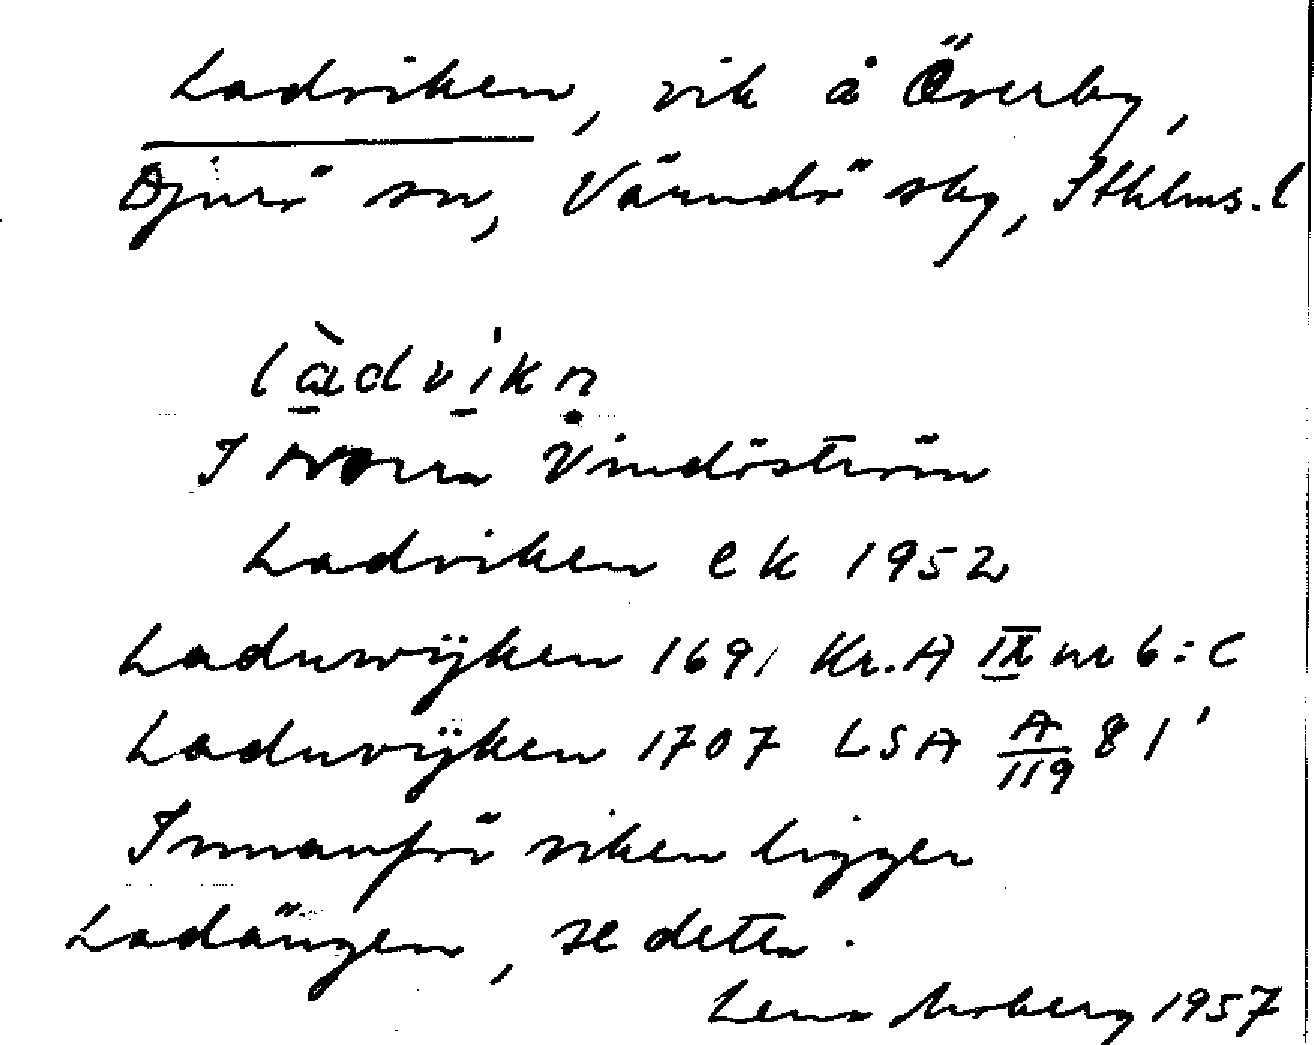 Ladviken, vik å Överby,
Djurö sn, Värmdö skg, Sthlms. l
làdvikṇ
I norra Vindöström
Ladviken ek 1952
Laduwÿken 1691 Kr.A IX nr 6:C
Laduvÿken 1707 LSA A/119 81'
Innanför viken ligger
Ladängen, se detta.
Lena Moberg 1957